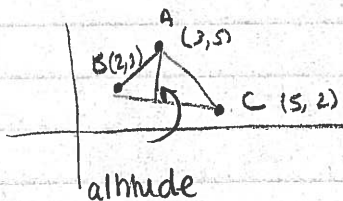 A
(3,5)
B(2,3)
C (5,2)
altitude